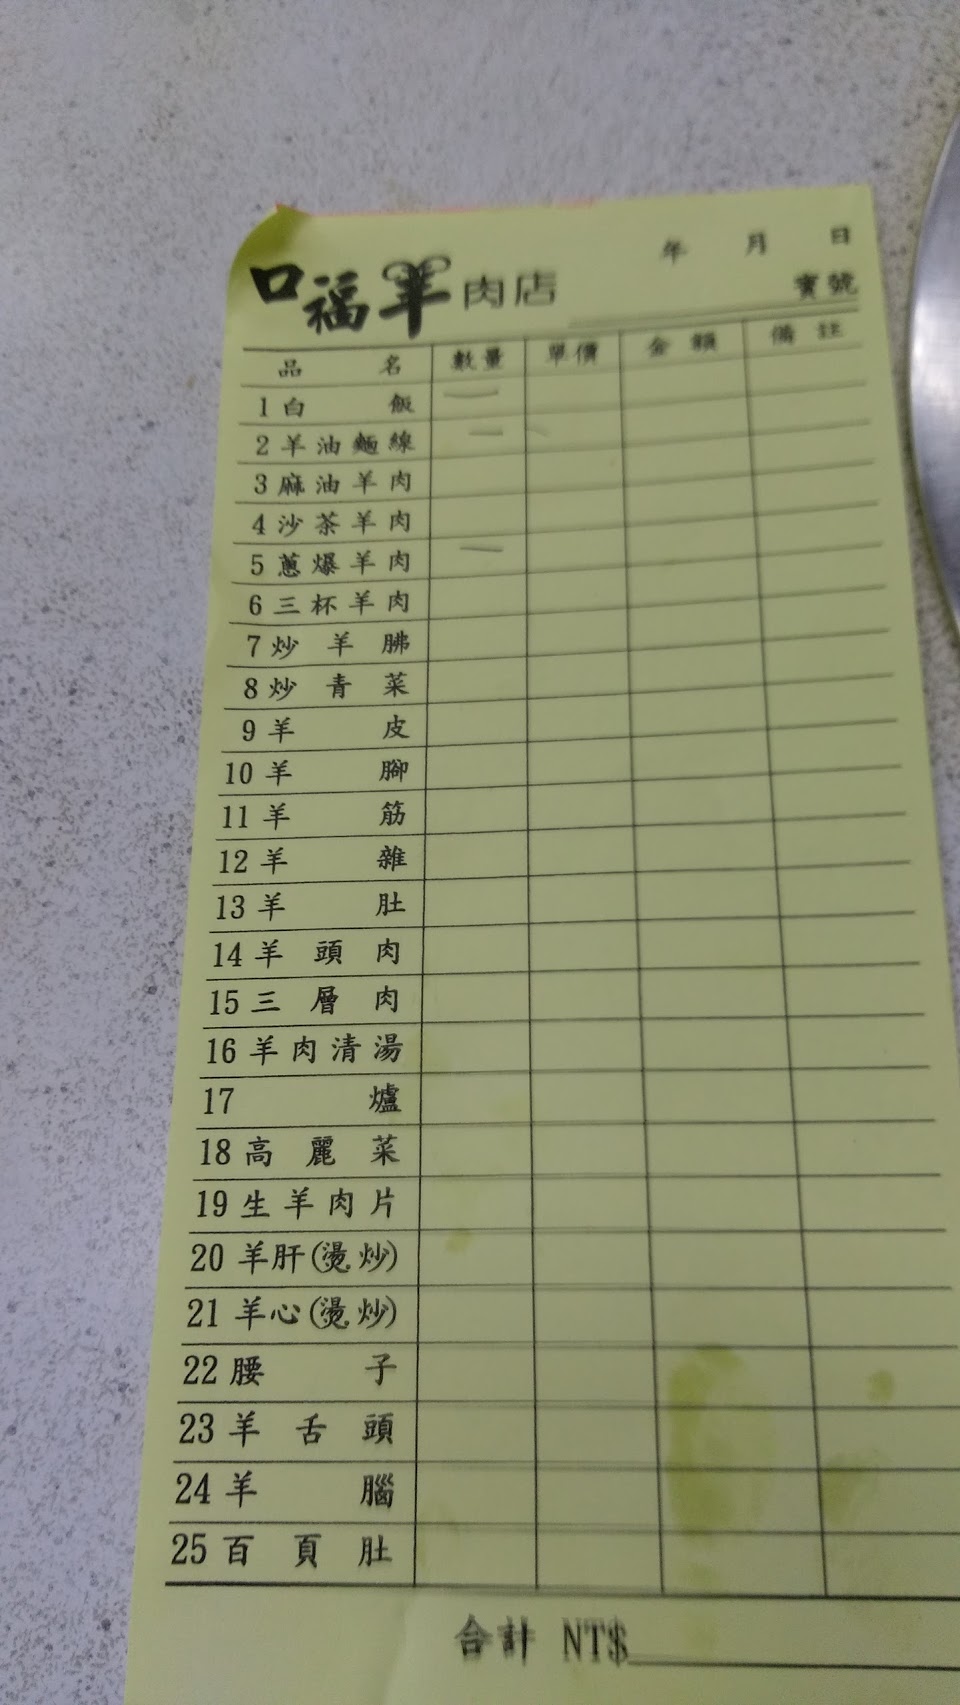 年 月 日
口福羊肉店
寶號
品名 數量 單價 金額 備註
1 白飯 一
2 羊油麵線 一
3 麻油羊肉
4 沙茶羊肉
5 蔥爆羊肉 一
6 三杯羊肉
7 炒羊胇
8 炒青菜
9 羊皮
10 羊腳
11 羊筋
12 羊雜
13 羊肚
14 羊頭肉
15 三層肉
16 羊肉清湯
17 爐
18 高麗菜
19 生羊肉片
20 羊肝(燙炒)
21 羊心(燙炒)
22 腰子
23 羊舌頭
24 羊腦
25 百頁肚
合計 NT$